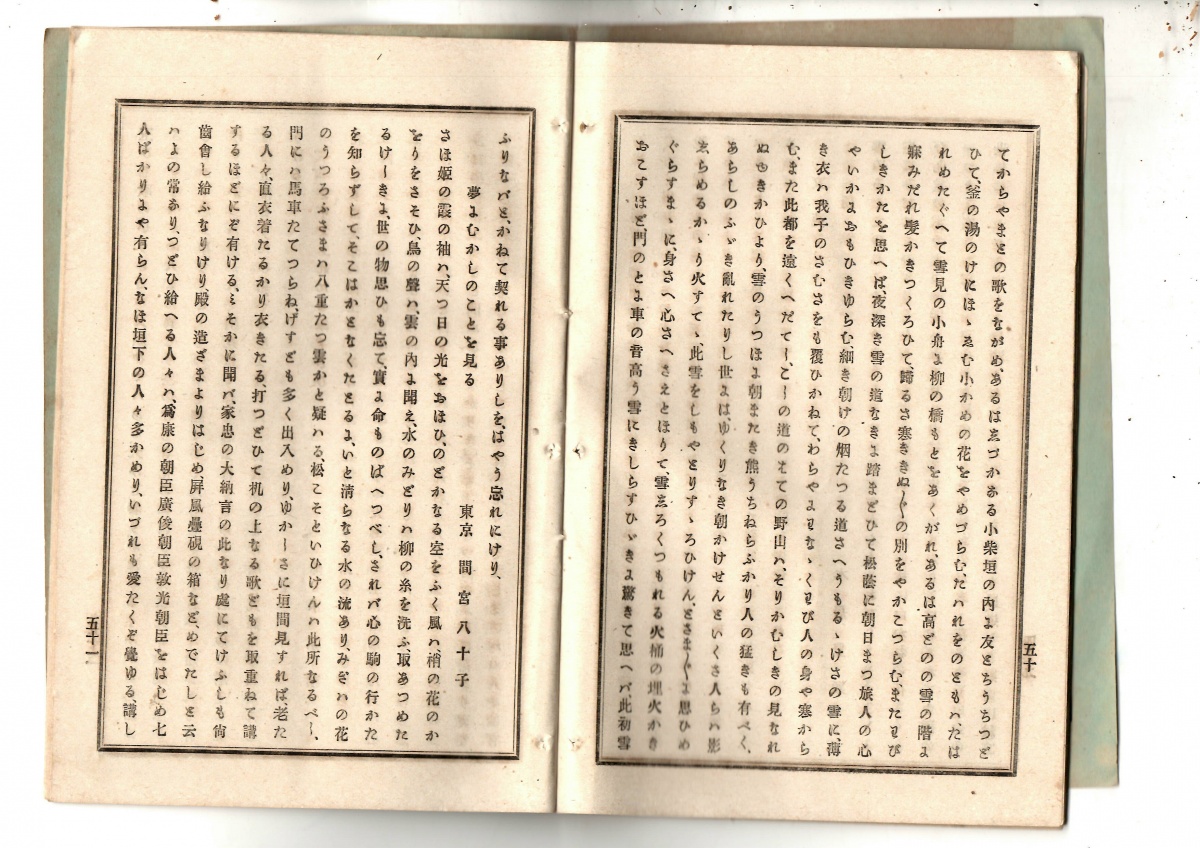 てからやまとの歌をながめ、あるはゑづかある小柴垣の內よ友とちうちつど
ひて、釜の湯のけにほゝゑむ小かめの花をやめづらむ、たハれをのともハ、たは
れめたぐへて雪見の小舟よ柳の橋もとをあくがれ、あるは高どのの雪の階よ
寐みだれ髮かきつくろひて、歸るさ寒ききぬ〳〵の別をやかこつらむ、またㄹび
しきかたを思へば、夜深き雪の道なきよ踏まどひて松蔭に朝日まつ旅人の心
やいかよおもひきゆらむ、細き朝けの烟たつる道さへうもるゝけさの雪に、薄
き衣ハ我子のさむさをも覆ひかねて、わらやよㄹなゝくㄹび人の身や寒から
む、また此都を遠くへだてし、こしの道のはての野山ハ、そりかむしきの見なれ
ぬゆきかひより、雪のうつほよ朝またき熊うちねらふかり人の猛きも有べく、
あらしのふゞき亂れたりし世よは、ゆくりなき朝かけせんといくさ人らハ影
ゑらめるかゝり火すてゝ、此雪をしもやとりすゝろひけん、とさま〴〵よ思ひめ
ぐらすまゝに、身さへ心さへさえとほりて雪ゑろくつもれる火桶の埋火かき
おこすほど、門のとよ車の音高う雪にきしらすひゞきよ驚きて思へバ、此初雪
五十
ふりなバと、かねて契れる事ありしを、はやう忘れにけり、
夢よむかしのことを見る
東京 間宮八十子
さほ姫の霞の袖ハ、天つ日の光をおほひ、のどかなる空をふく風ハ、梢の花のか
をりをさそひ、鳥の聲ハ、雲の內よ聞え、水のみどりハ柳の糸を洗ふ、取あつめた
るけしきよ、世の物思ひも忘て、實よ命ものばへつべし、されバ心の駒の行かた
を知らずして、そこはかとなくたとるよ、いと清らなる水の流あり、みぎハの花
のうつろふさまハ八重たつ雲かと疑ハる、松こそといひけんハ此所なるべし、
門にハ馬車たてつらね、げすども多く出入めり、ゆかしさに垣間見すれば、老た
る人々、直衣着たるかり衣きたる、打つどひて机の上なる歌どもを取重ねて講
するほどにぞ有ける、ミそかに聞バ、家忠の大納言の此なり處にてけふしも尙
齒會し給ふなりけり、殿の造ざまよりはじめ、屏風疊硯の箱など、めでたしと云
ハよの常あり、つどひ給へる人々ハ、爲康の朝臣廣俊朝臣敦光朝臣をはじめ七
人ばかりよや有らん、なほ垣下の人々多かめり、いづれも愛たくぞ覺ゆる、講し
五十一